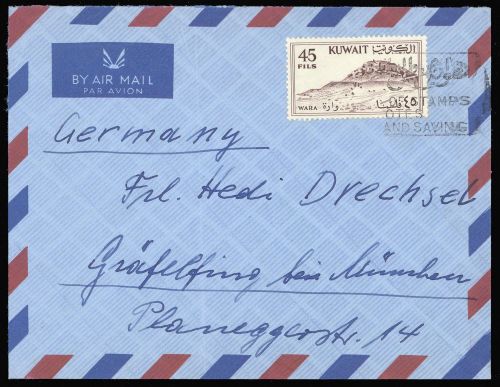 BY AIR MAIL
PAR AVION
45
FILS
KUWAIT الكويت
WARA وارة
٤٥ فلسا
STAMPS
AND SAVING
Germany
Frl. Hedi Drechsel
Gräfelfing bei München
Planeggerstr. 14